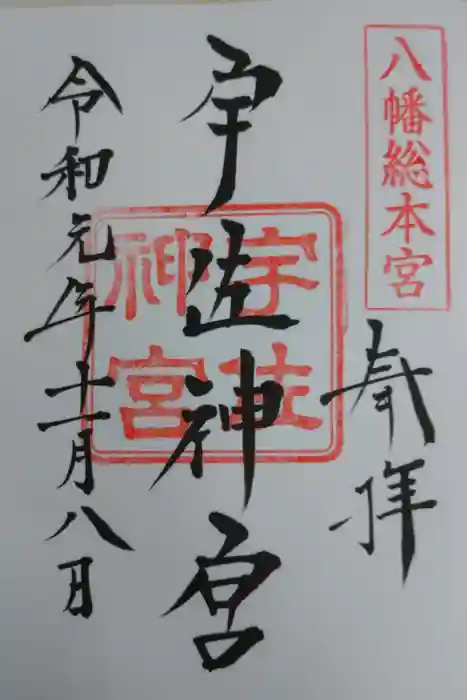 八幡総本宮
奉拝
宇佐神宮
宇佐
神宮
令和元年十一月八日